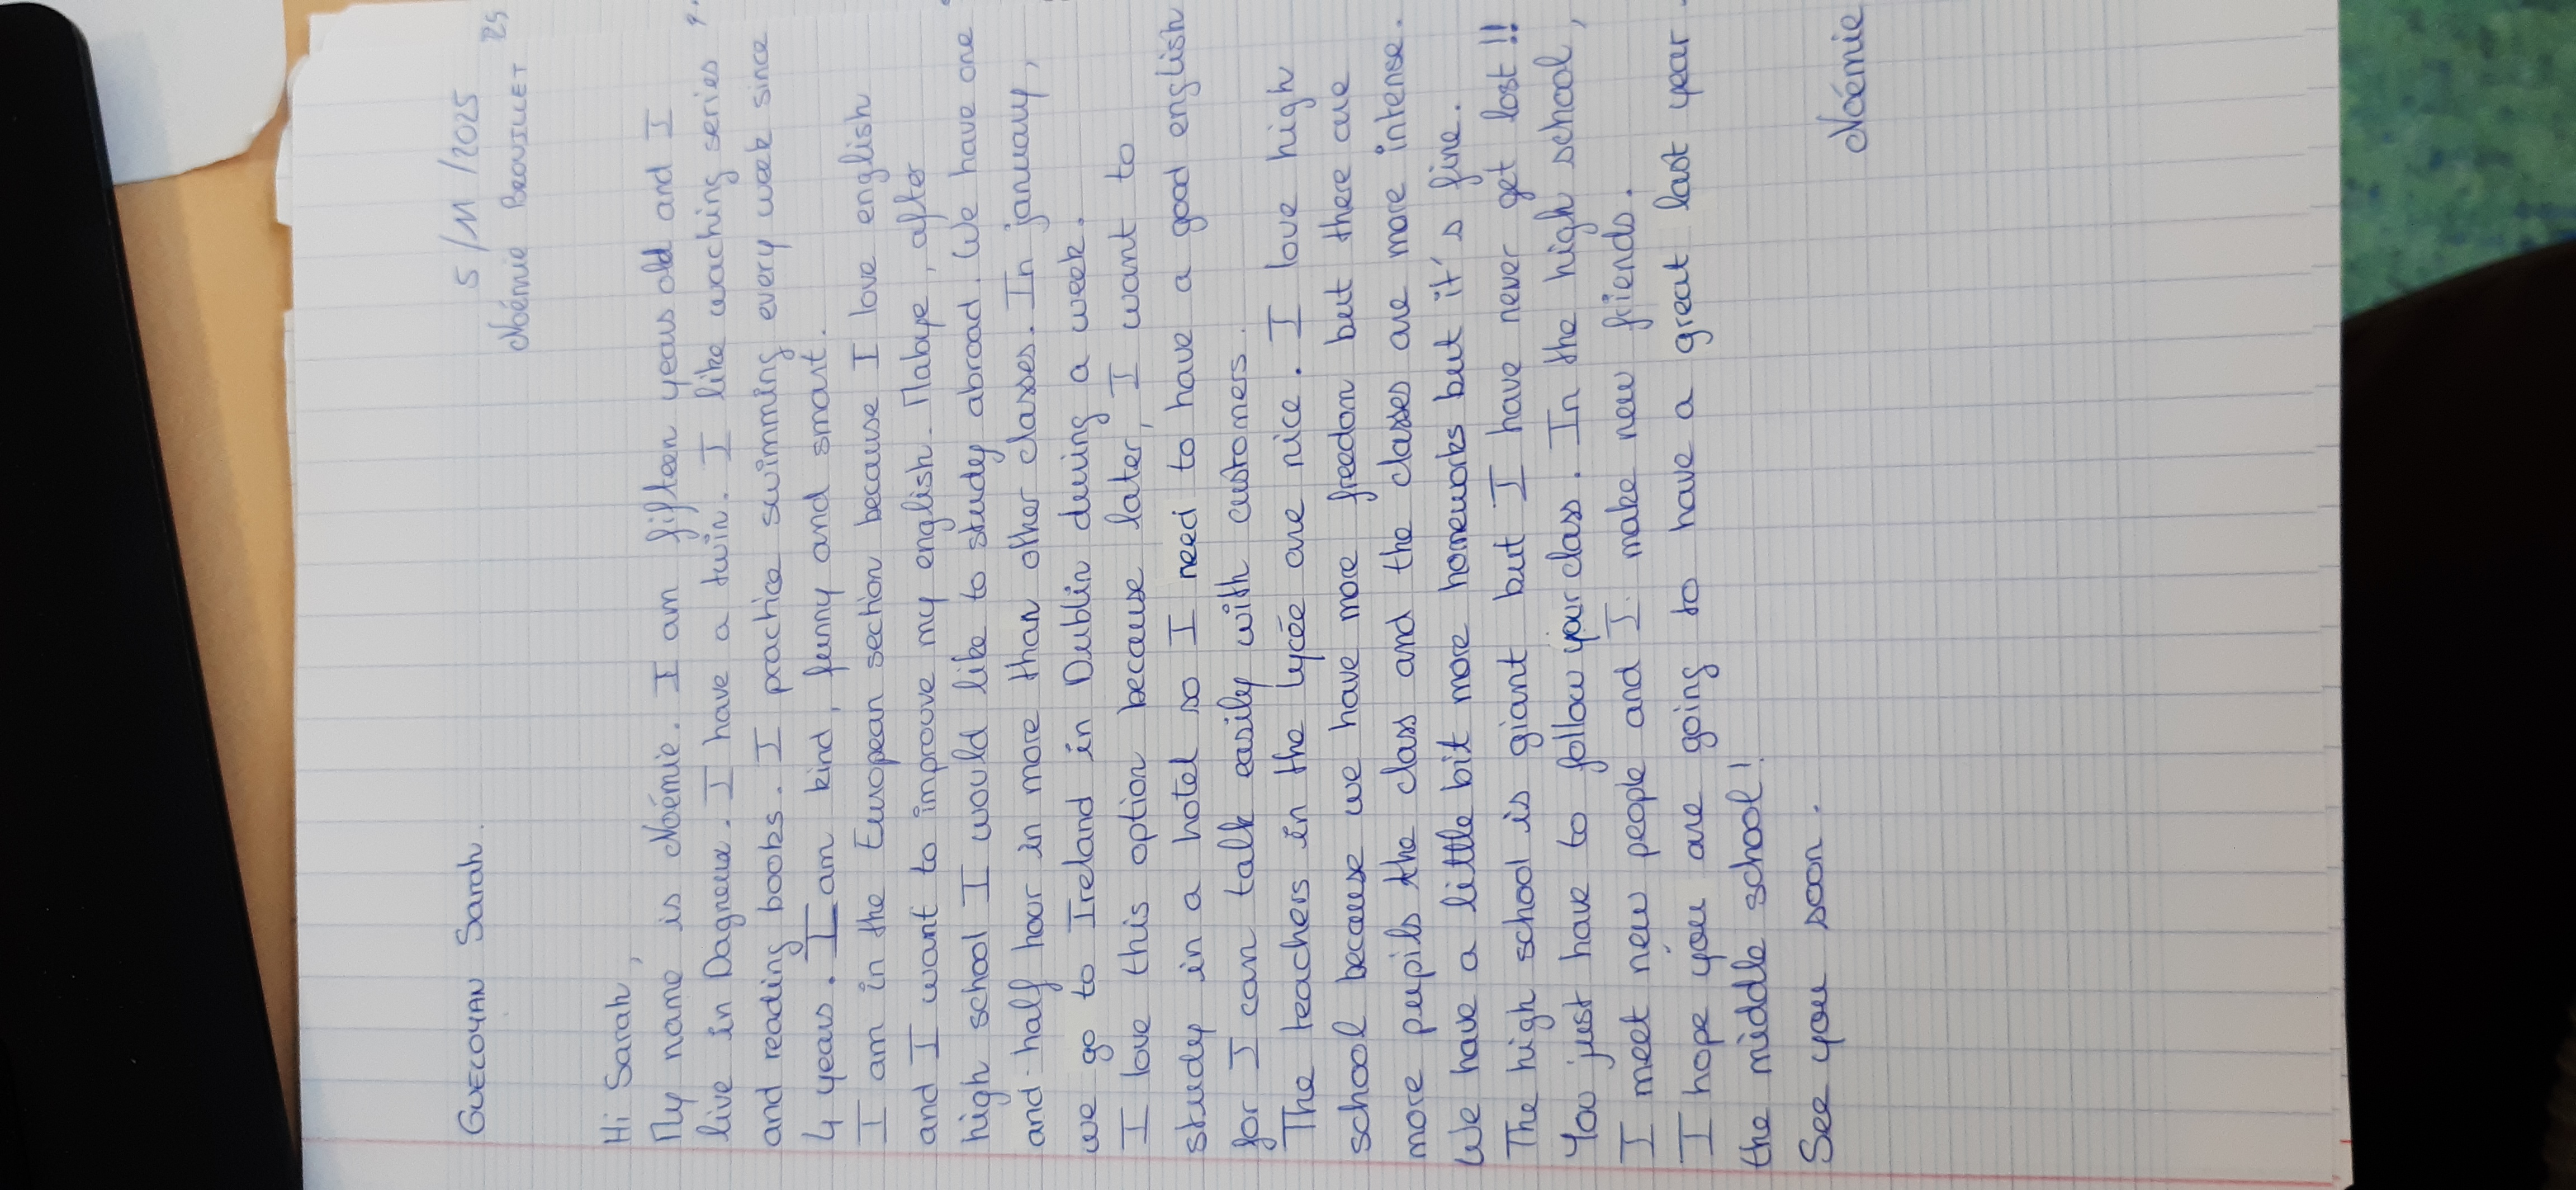 5/11/2025
GUECOYAN Sarah.
Noémie BROUILLET 2§
Hi Sarah,
My name is Noémie. I am fifteen years old and I
live in Dagneux. I have a twin. I like waching series
and reading books. I practice swimming every week since
4 years. I am kind, funny and smart.
I am in the European section because I love english
and I want to improove my english. Mabye, after
high school I would like to study abroad. We have one
and half hour in more than other classes. In january,
we go to Ireland in Dublin during a week.
I love this option because later, I want to
study in a hotel so I need to have a good english
for I can talk easily with customers.
The teachers in the lycée are nice. I love high
school because we have more freedom but there are
more pupils the class and the classes are more intense.
We have a little bit more homeworks but it's fine.
The high school is giant but I have never get lost!!
You just have to follow your class. In the high school,
I meet new people and I make new friends.
I hope you are going to have a great last year
the middle school!
See you soon.
Noémie